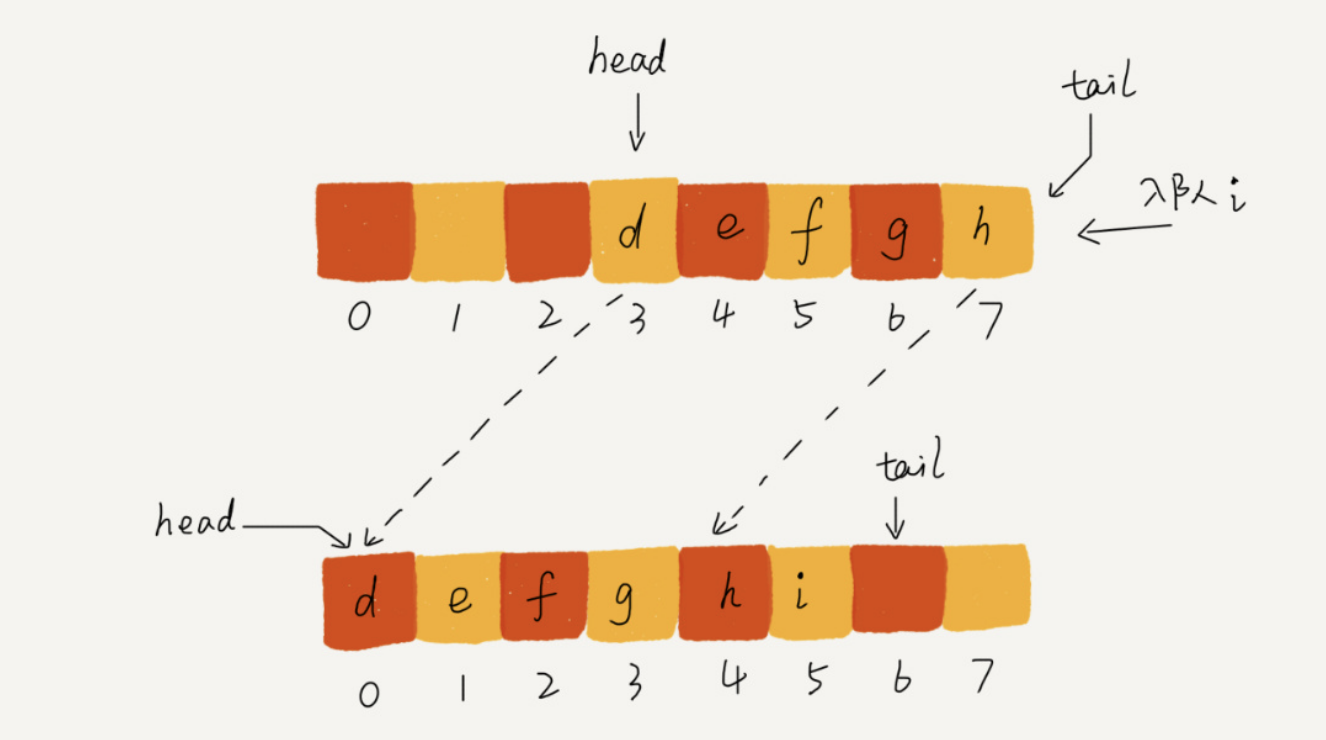 head
tail
入队 i
d e f g h
0 1 2 3 4 5 6 7
tail
head
d e f g h i
0 1 2 3 4 5 6 7